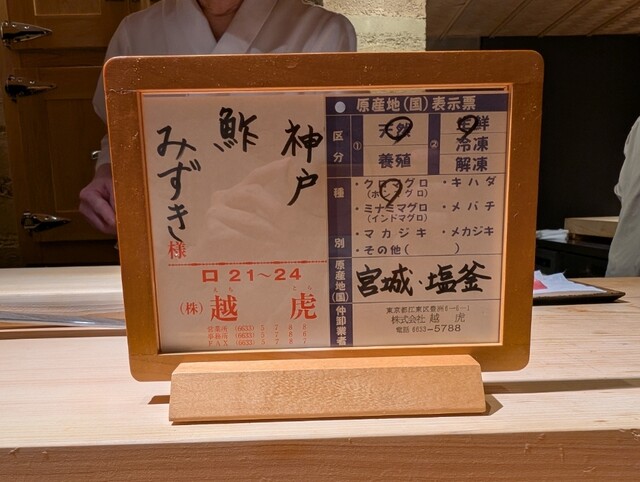 神戸
鮓
みずき様
ロ 21～24
えち とら
(株) 越 虎
営業所 (6633)
事務所 (6633)
FAX (6633)
原産地(国)表示票
区分
① 天然
養殖
② 生鮮
冷凍
解凍
種別
・クロマグロ
(ホンマグロ)
・キハダ
・ミナミマグロ
(インドマグロ)
・メバチ
・マカジキ
・メカジキ
・その他( )
原産地(国)
宮城・塩釜
仲卸業者
東京都江東区豊洲6-6-1
株式会社 越 虎
電話 6633-5788